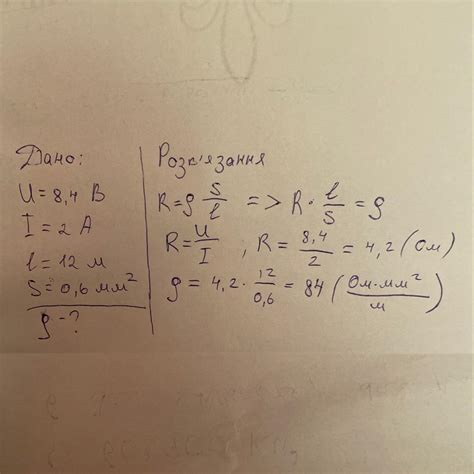 Дано:
U = 8,4 В
I = 2 А
l = 12 м
S = 0,6 мм²
ρ - ?
Розв'язання
R = ρ S/l => R · l/S = ρ
R = U/I , R = 8,4/2 = 4,2 (Ом)
ρ = 4,2 · 12/0,6 = 84 (Ом·мм²/м)